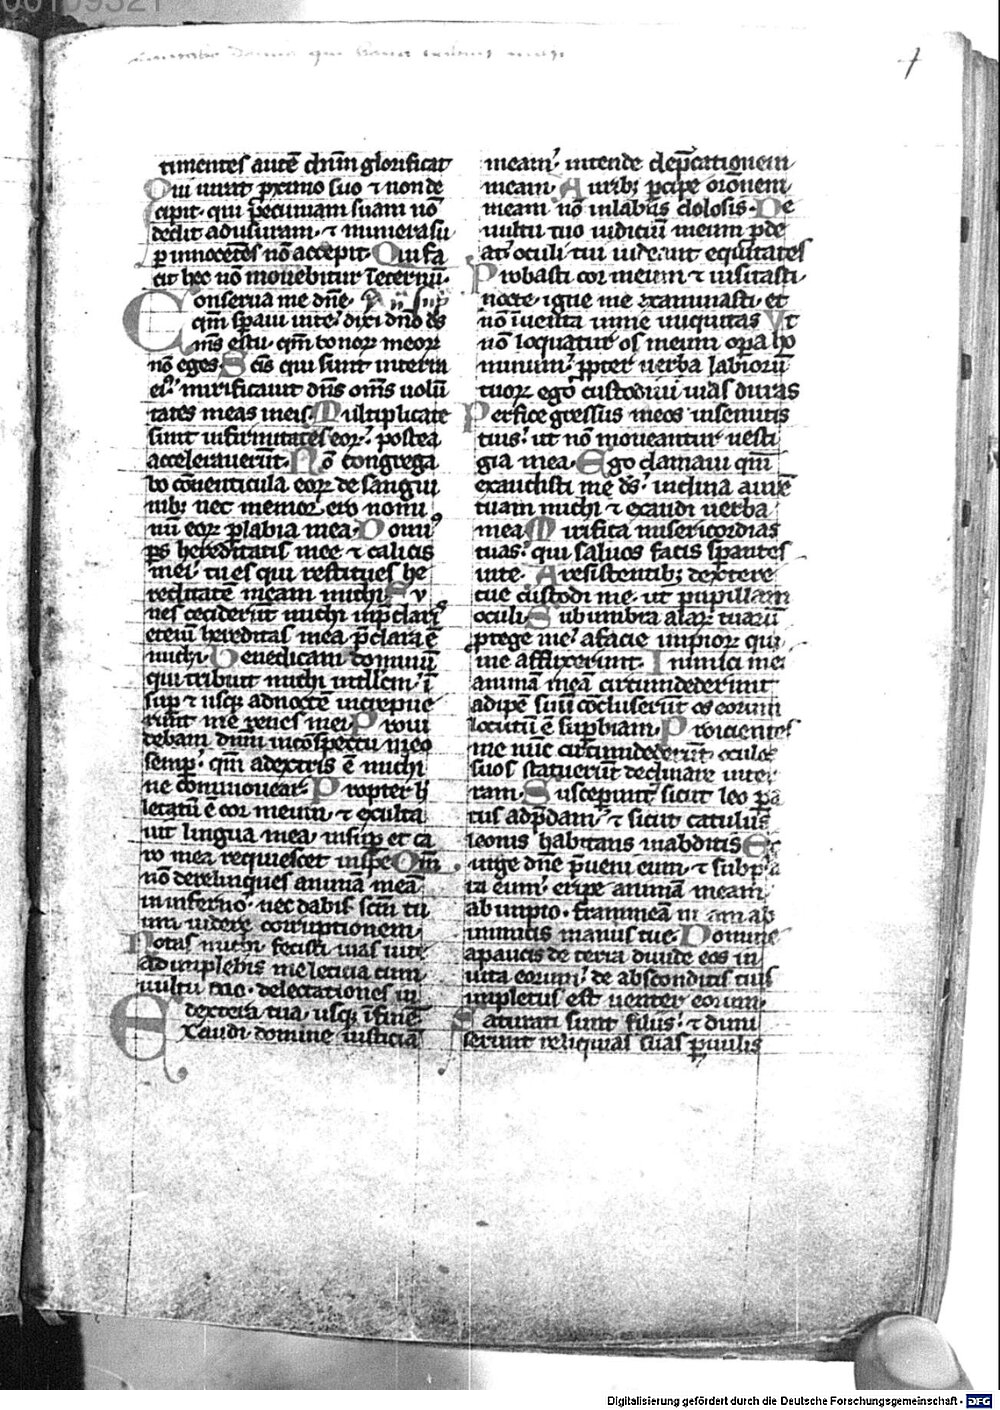 timentes autē dnm̄ glorificat
Qui iurat p̄ximo suo ⁊ non de
cipit· qui pecuniam suam nō
dedit ad usuram· ⁊ munera su
p̱ innocētes nō accepit· Qui fa
cit hec nō mouebitur ī eternū·
Conserua me dn̄e·
qm̄ speraui in te· dixi dn̄o ds̄
ms̄ es tu· qm̄ bonoꝝ meoꝝ
nō eges· Scīs qui sunt in terra
ei᷒· mirificauit dn̄s om̄s uolū
tates meas in eis· Multiplicate
sunt infirmitates eoꝝ· postea
accelerauerūt· Nō congrega
bo cōuenticula eoꝝ de sangui
nibꝫ nec memor ero nomi
nū eoꝝ p̱ labia mea· Domin᷒
ps̄ hereditatis mee ⁊ calicis
mei· tu es qui restitues he
reditatē meam michi· Fu
nes ceciderūt michi in p̄claris
etenī hereditas mea p̄clara ē
michi· Benedicam dominū
qui tribuit michi intllcm̄· ī
sup̱ ⁊ usqꝫ ad noctē increpue
runt me renes mei· Proui
debam dnm̄ in cōspectu meo
semp̱· qm̄ a dextris ē michi
ne commouear· Propter h̄
letatū ē cor meum· ⁊ exulta
uit lingua mea· insup̱ et ca
ro mea requiescet in spe· Qm̄
nō derelinques animā meā
in inferno· nec dabis scm̄ tu
um uidere corruptionem·
Notas michi fecisti uias uite
adimplebis me leticia cum
uultu tuo· delectationes in
dextera tua· usqꝫ ī finē·
Exaudi domine iusticiā
meam· intende dep̄cationem
meam· Auribꝫ p̱cipe orōnem
meam nō in labiis dolosis· De
uultu tuo iudiciū meum p̱de
at· oculi tui uideant equitates
Probasti cor meum ⁊ uisitasti
nocte· igne me examinasti· et
nō īuenta in me iniquitas Ut
nō loquatur os meum opa ho
minum· p̱pter uerba labiorū
tuoꝝ ego custodiui uias duras
Perfice gressus meos in semitis
tuis· ut nō moueantur uesti
gia mea· Ego clamaui qm̄
exaudisti me ds̄· inclina aurē
tuam michi ⁊ exaudi uerba
mea· Mirifica misericordias
tuas· qui saluos facis sp̱antes
in te· A resistentibꝫ dextere
tue custodi me· ut pupillam
oculi· Sub umbra alaꝝ tuarū
p̱tege me· a facie impioꝝ qui
me afflixerunt· Inimici mei
animā meā circumdederunt
adipē suū cōcluserūt os eorum
locutū ē sup̱biam· Proicientes
me nūc circumdederūt· oculos
suos statuerūt declinare in ter
ram· Susceperunt sicut leo pa
ratus ad p̄dam· ⁊ sicut catulus
leonis habitans in abditis· Ex
urge dn̄e p̄ueni eum· ⁊ subpla
ta eum· eripe animā meam
ab impio· frameā tuam ab
inimicis manus tue· Domine
a paucis de terra diuide eos in
uita eorum· de absconditis tuis
impletus est uenter eorum·
Saturati sunt filiis· ⁊ dimi
serunt reliquias suas p̱uulis
Digitalisierung gefördert durch die Deutsche Forschungsgemeinschaft - DFG